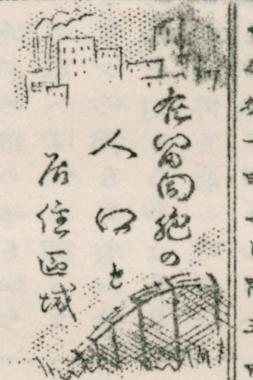 在留同胞の
人口と
居住區域